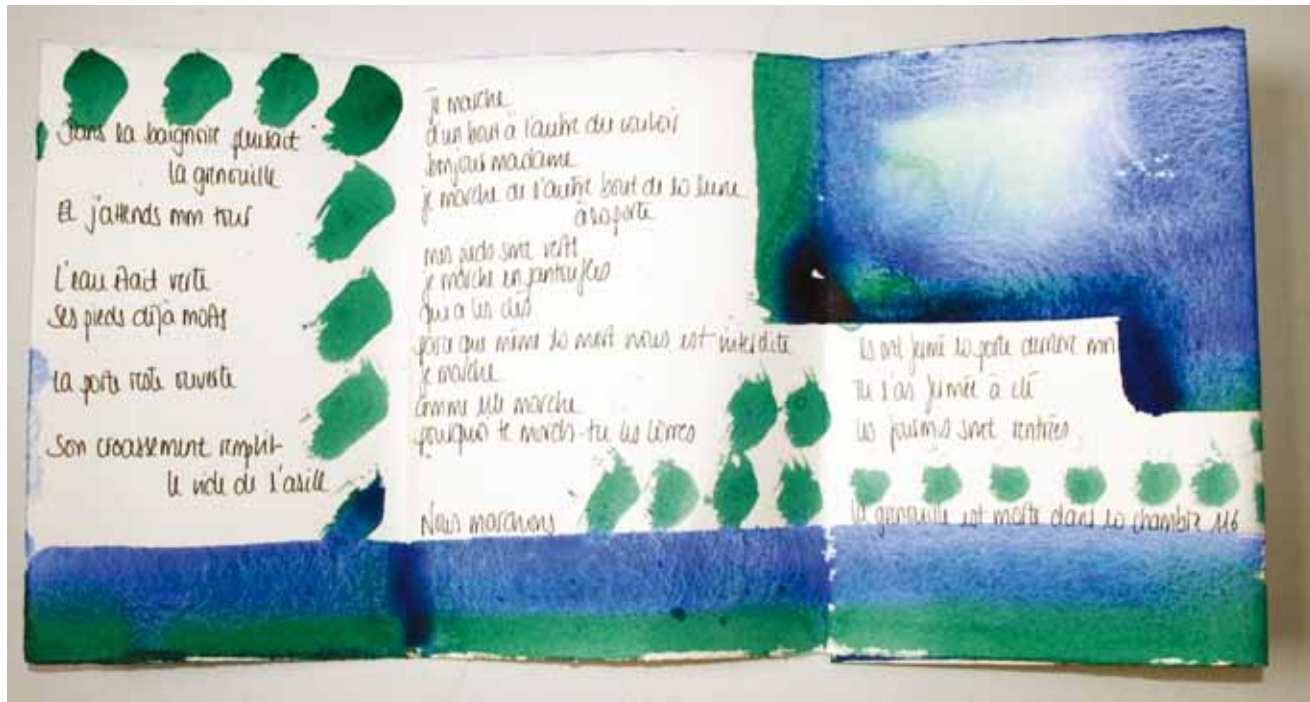 Dans la baignoire pleurait
la grenouille
Et j'attends mon tour
L'eau était verte
Ses pieds déjà morts
La porte reste ouverte
Son croassement remplit
le vide de l'asile
je marche
d'un bout à l'autre du couloir
bonjour madame
je marche de l'autre bout de la lune
à la porte
mes pieds sont verts
je marche en pantoufles
qui a les clés
parce que même la mort nous est interdite
je marche
comme elle marche
pourquoi te mords-tu les lèvres
Nous marchons
ils ont fermé la porte derrière moi
Tu l'as fermée à clé
les fourmis sont rentrées
la grenouille est morte dans la chambre 116